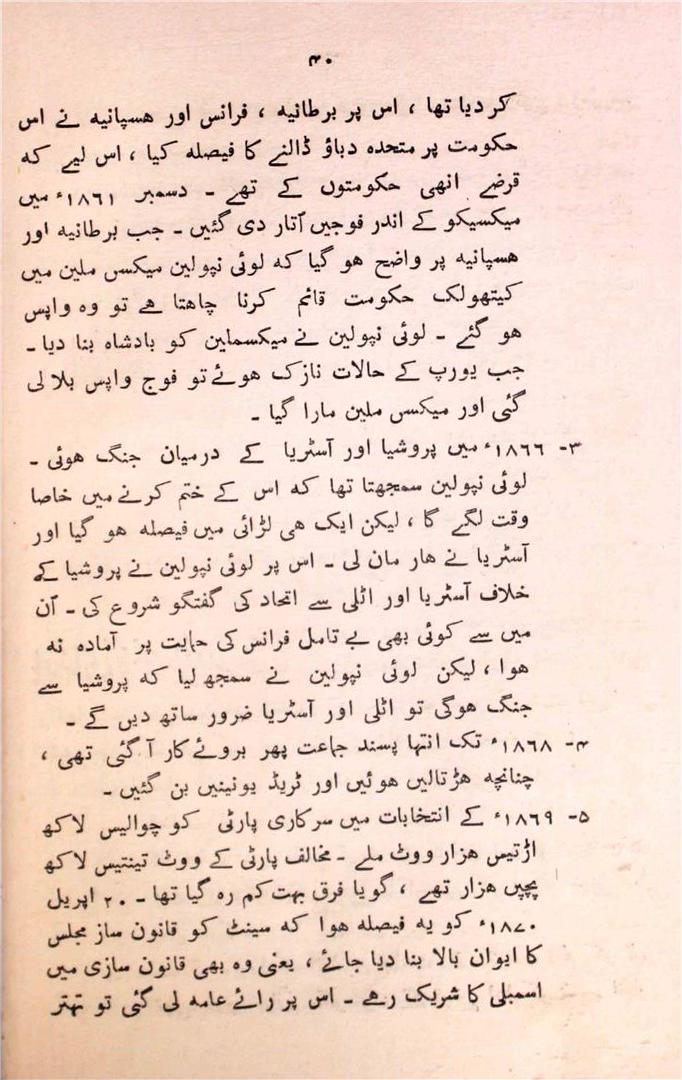 ۴۰
کر دیا تھا ، اس پر برطانیہ ، فرانس اور ھسپانیہ نے اس
حکومت پر متحدہ دباؤ ڈالنے کا فیصلہ کیا ، اس لیے کہ
قرضے انھی حکومتوں کے تھے ۔ دسمبر ۱۸۶۱ء میں
میکسیکو کے اندر فوجیں اُتار دی گئیں ۔ جب برطانیہ اور
ھسپانیہ پر واضح ھو گیا کہ لوئی نپولین میکسی ملین میں
کیتھولک حکومت قائم کرنا چاھتا ہے تو وہ واپس
ھو گئے ۔ لوئی نپولین نے میکسملین کو بادشاہ بنا دیا ۔
جب یورپ کے حالات نازک ھوئے تو فوج واپس بلا لی
گئی اور میکسی ملین مارا گیا ۔
۳۔ ۱۸۶۶ء میں پروشیا اور آسٹریا کے درمیان جنگ ھوئی ۔
لوئی نپولین سمجھتا تھا کہ اس کے ختم کرنے میں خاصا
وقت لگے گا ، لیکن ایک ھی لڑائی میں فیصلہ ھو گیا اور
آسٹریا نے ھار مان لی ۔ اس پر لوئی نپولین نے پروشیا کے
خلاف آسٹریا اور اٹلی سے اتحاد کی گفتگو شروع کی ۔ اُن
میں سے کوئی بھی بے تامل فرانس کی حمایت پر آمادہ نہ
ھوا ، لیکن لوئی نپولین نے سمجھ لیا کہ پروشیا سے
جنگ ھوگی تو اٹلی اور آسٹریا ضرور ساتھ دیں گے ۔
۴۔ ۱۸۶۸ء تک انتہا پسند جماعت پھر بروئے کار آ گئی تھی ،
چنانچہ ھڑتالیں ھوئیں اور ٹریڈ یونینیں بن گئیں ۔
۵۔ ۱۸۶۹ء کے انتخابات میں سرکاری پارٹی کو چوالیس لاکھ
اڑتیس ھزار ووٹ ملے ۔ مخالف پارٹی کے ووٹ تینتیس لاکھ
پچپن ھزار تھے ، گویا فرق بہت کم رہ گیا تھا ۔ ۲۰ اپریل
۱۸۷۰ء کو یہ فیصلہ ھوا کہ سینٹ کو قانون ساز مجلس
کا ایوان بالا بنا دیا جائے ، یعنی وہ بھی قانون سازی میں
اسمبلی کا شریک رہے ۔ اس پر رائے عامہ لی گئی تو تہتر